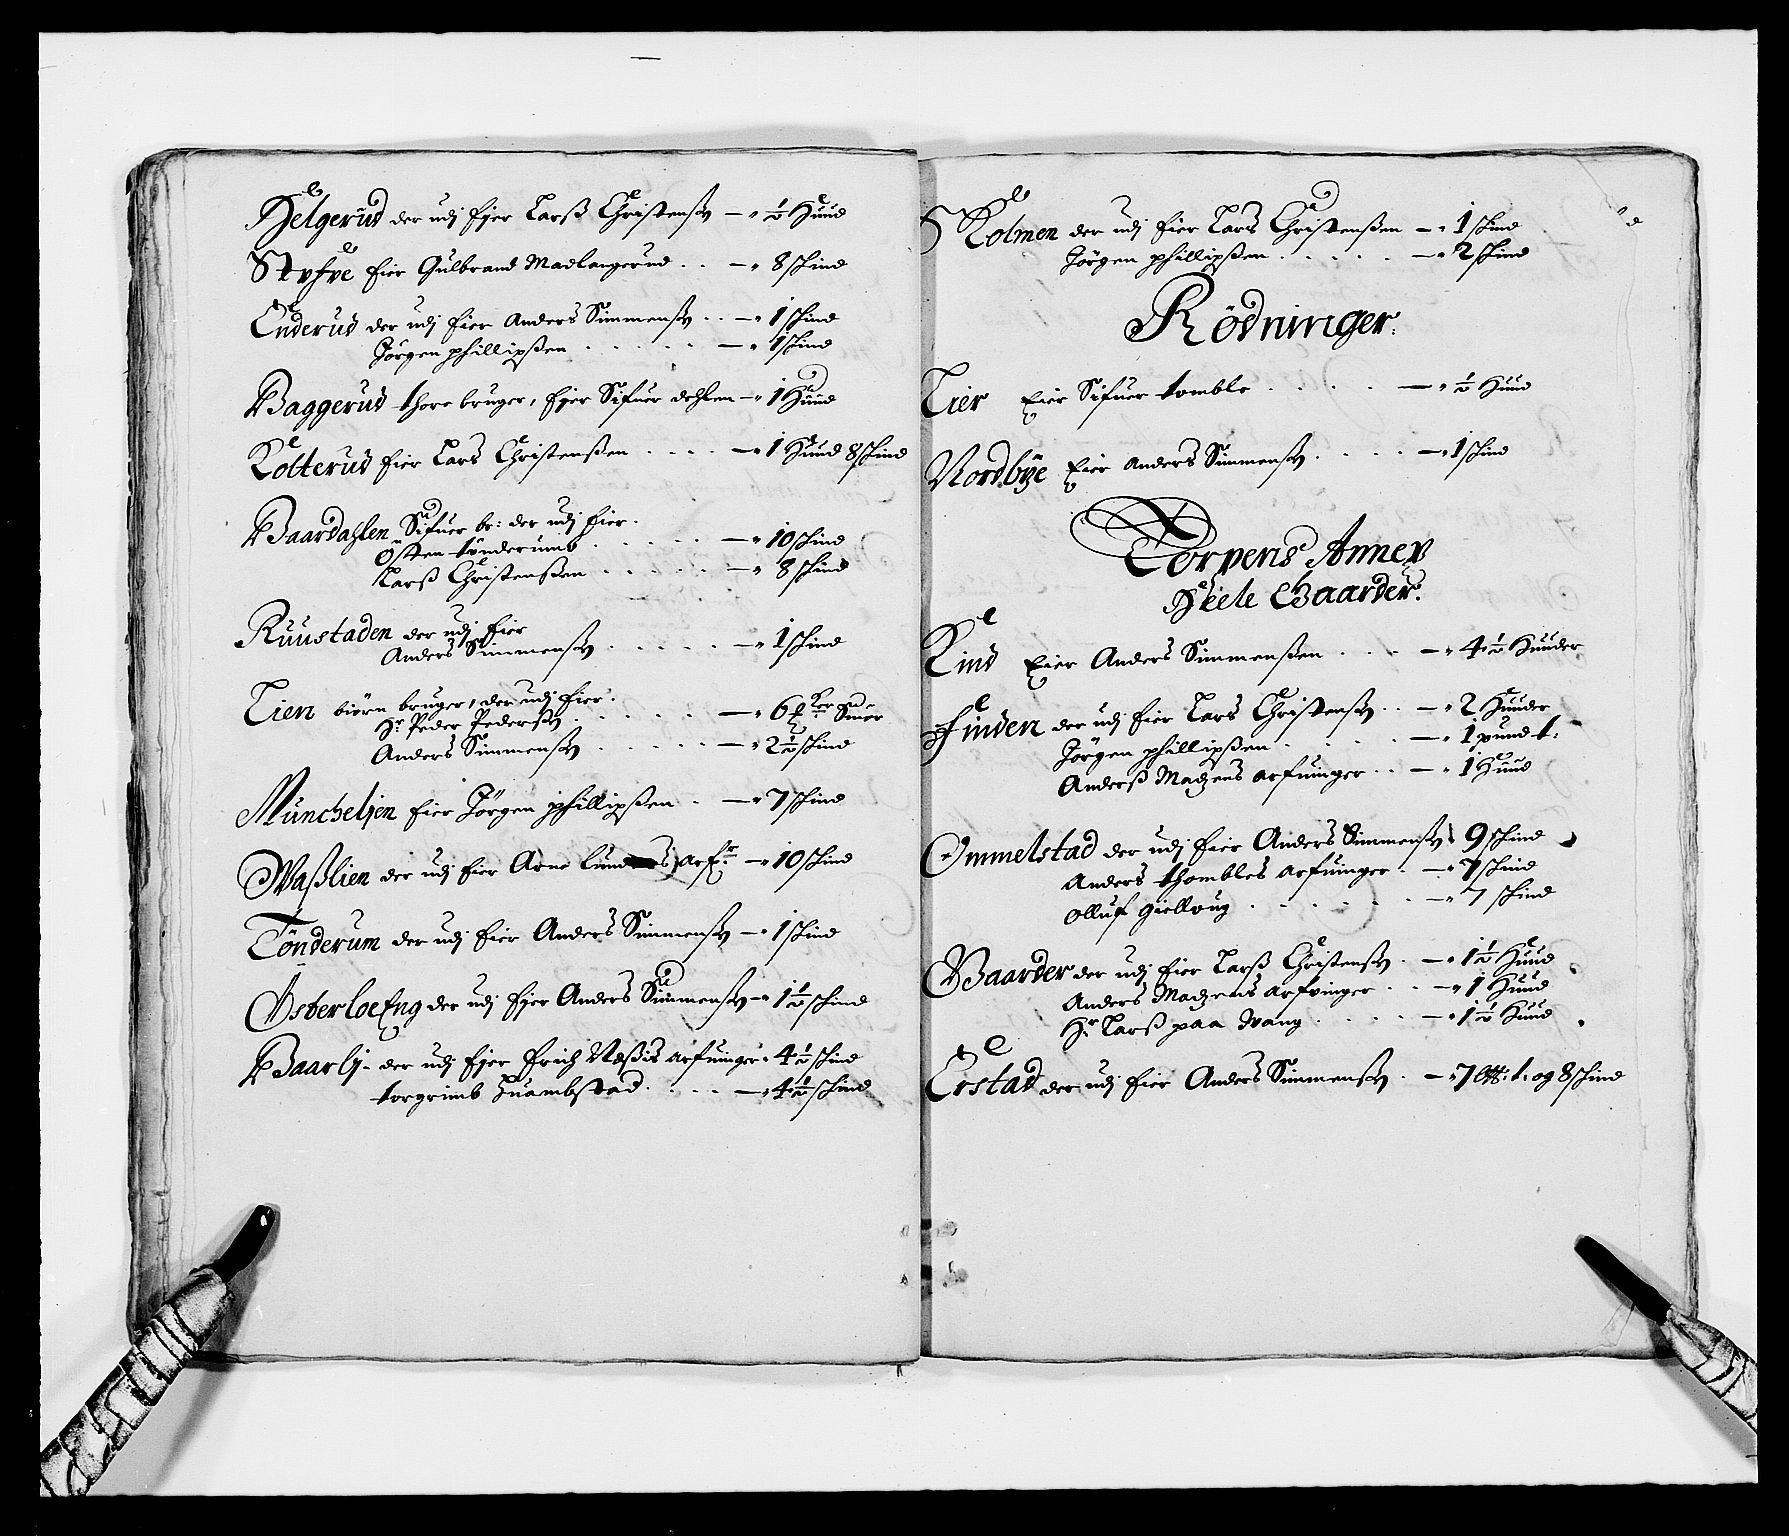 Helgerud der udj Ejer Larß Christensøn — ½ Huud
Styfve Eier Gulbrand Madlangerud . . — 8 skind
Enderud der udj Eier Anders Simmensøn . . — 1 skind
Jörgen phillipßen . . . . . — 1 skind
Baggerud thore bruger, Ejer Sifuer dehlen — 1 Huud
Kotterud Eier Lars Christenßen . . . . — 1 Huud 8 skind
Baardahlen Sifuer br: der udj Eier.
Østen tönderumb . . . . . — 10 skind
Larß Christenßen . . . . . — 8 skind
Ruustaden der udj Eier
Anders Simmensøn . . . . . — 1 skind
Lien biörn bruger, der udj Eier.
Hr Peder Pedersøn . . . . . — 6 Smör
Anders Simmensøn . . . . . — 2½ skind
Muncheljen Eier Jörgen phillipßen . — 7 skind
Waßlien der udj Eier Arne Arfr — 10 skind
Tönderum der udj Eier Anders Simmensøn — 1 skind
Østerloe Eng der udj Ejer Anders Simmensøn — 1½ skind
Baarlj der udj Ejer Erich Neßis arfuinger 4½ skind
torgrimb Quambstad . . . . — 4½ skind
Kolmen der udj Eier Lars Christenßen — 1 skind
Jörgen phillipßen . . . . . — 2 skind
Rödninger.
Lier Eier Sifuer tomble . . . . . — ½ Huud
Nordbye Eier Anders Simmensøn . . . . — 1 skind
Torpens Annex
Heele Gaarder.
Kind Eier Anders Simmenßen . . . — 4½ Huuder
Finden der udj Eier Lars Christensøn . . — 2 Huuder
Jörgen phillipßen . . . . . — 1 pund t:
Anderß Madzens arfuinger . . — 1 Huud
Ommelstad der udj Eier Anders Simmensøn 9 skind
Anders thombles arfuinger . — 7 skind
Olluf Gielloug . . . . . — 7 skind
Gaarder der udj Eier Larß Christensøn . — 1½ Huud
Anders Madzens arfvinger . . — 1 Huud
Hr Larß paa Wang . . . . — 1½ Huud
Erstad der udj Eier Anders Simmensøn . — 7 t: og 8 skind